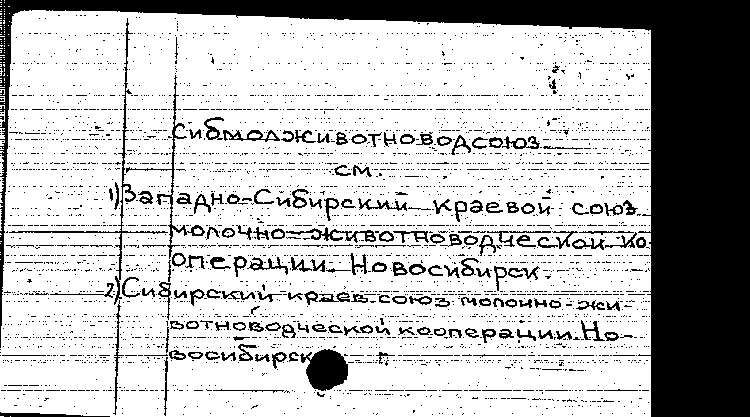 Сибмолживотноводсоюз
см.
1) Западно-Сибирский краевой союз
молочно-животноводческой ко
операции. Новосибирск.
2) Сибирский краев. союз молочно-жи-
вотноводческой кооперации. Но-
восибирск